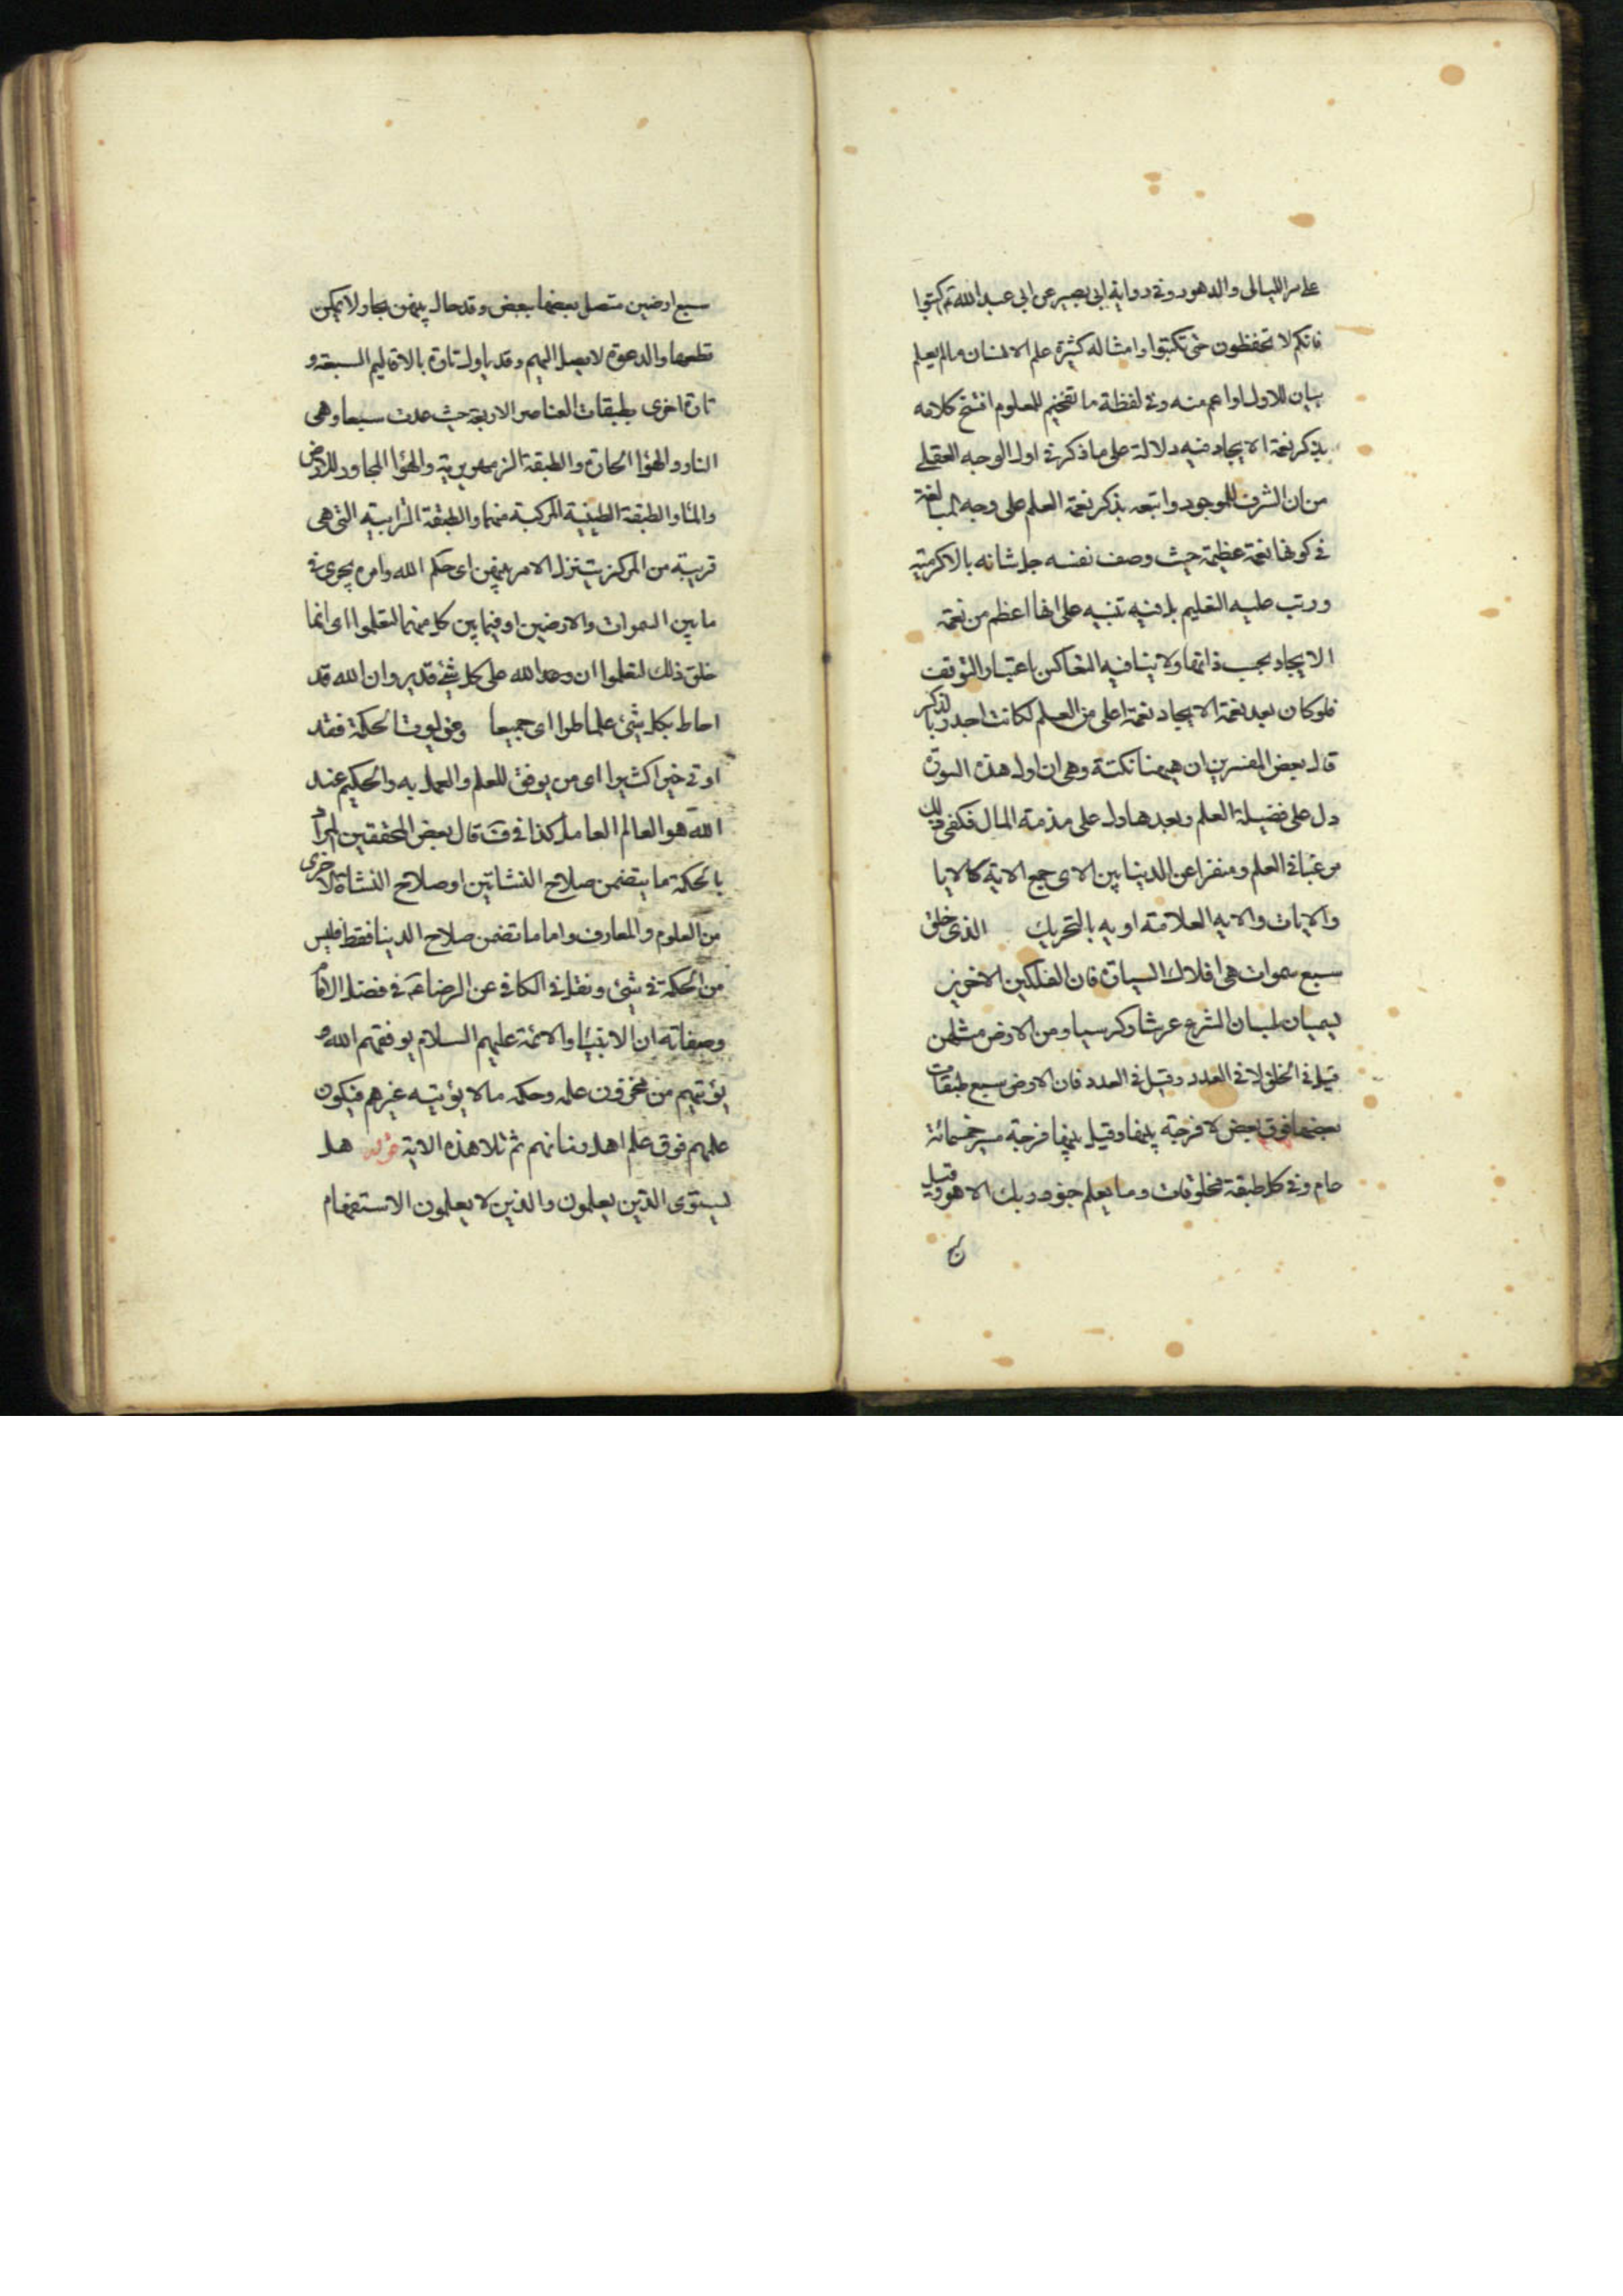 على مر الليالى والدهور وفى رواية ابى بصير عن ابى عبد الله ع اكتبوا
فانكم لا تحفظون حتى تكتبوا وامثاله كثيرة علم الانسان ما لم يعلم
بيان للاول او اعم منه وفى لفظة ما تفخيم للعلوم افتتح كلامه
بذكر نعمة الايجاد فيه دلالة على ما ذكر فى اول الوجه العقلى
من ان الشرف للموجود واتبعه بذكر نعمة العلم على وجه المبالغة
فى كونها نعمة عظيمة حيث وصف نفسه جل شانه بالاكرمية
ورتب عليه التعليم بل فيه تنبيه على انها اعظم من نعمة
الايجاد بحسب ذاتها ولا ينافيه التعاكس باعتبار التوقف
فلو كان بعد نعمة الايجاد نعمة اعلى من العلم لكانت اجدر بالذكر
قال بعض المفسرين ان ههنا نكتة وهى ان اول هذه السورة
دل على فضيلة العلم وبعدها دل على مذمة المال فكفى بذلك
مرغبا فى العلم ومنفرا عن الدنيا بين الاى جمع الاية كالايا
والايات والايه العلامة اويه بالتحريك الذى خلق
سبع سموات هى افلاك السيارة فان الفلكين الاخرين
يسميان بلسان الشرع عرشا وكرسيا ومن الارض مثلهن
قيل فى الخلق لا فى العدد وقيل فى العدد فان الارض سبع طبقات
بعضها فوق بعض لا فرجة بينها وقيل بينها فرجة مسير خمسمائة
عام وفى كل طبقة مخلوقات وما يعلم جنود ربك الا هو وقيل
سبع ارضين متصل بعضها ببعض وقد حال بينهن بحار لا يمكن
قطعها والدعوة لا يصل اليهم وقد ياول تارة بالاقاليم السبعة و
تارة اخرى بطبقات العناصر الاربعة حيث عدت سبعا وهى
النار والهؤا الحارة والطبقة الزمهريرية والهؤا المجاور للارض
والماء والطبقة الطينية المركبة منهما والطبقة الترابية التى هى
قريبة من المركز يتنزل الامر بينهن اى حكم الله وامره يجرى فى
ما بين السموات والارضين او فيما بين كل منهما لتعلموا اى انما
خلق ذلك لتعلموا ان وعد الله على كل شئ قدير وان الله قد
احاط بكل شئ علما طرا اى جميعا ومن يؤت الحكمة فقد
اوتى خيرا كثيرا اى من يوفق للعلم والعمل به والحكيم عند
الله هو العالم العامل كذا فى ق قال بعض المحققين المراد
بالحكمة ما يتضمن صلاح النشاتين او صلاح النشاة الاخرى
من العلوم والمعارف واما ما تضمن صلاح الدنيا فقط فليس
من الحكمة فى شئ ونقل فى الكافى عن الرضا ع فى فضل الامام
وصفاته ان الانبياء والائمة عليهم السلام يوفقهم الله و
يؤتيهم من مخزون علمه وحكمه ما لا يؤتيه غيرهم فيكون
علمهم فوق علم اهل زمانهم ثم تلا هذه الاية قوله هل
يستوى الذين يعلمون والذين لا يعلمون الاستفهام